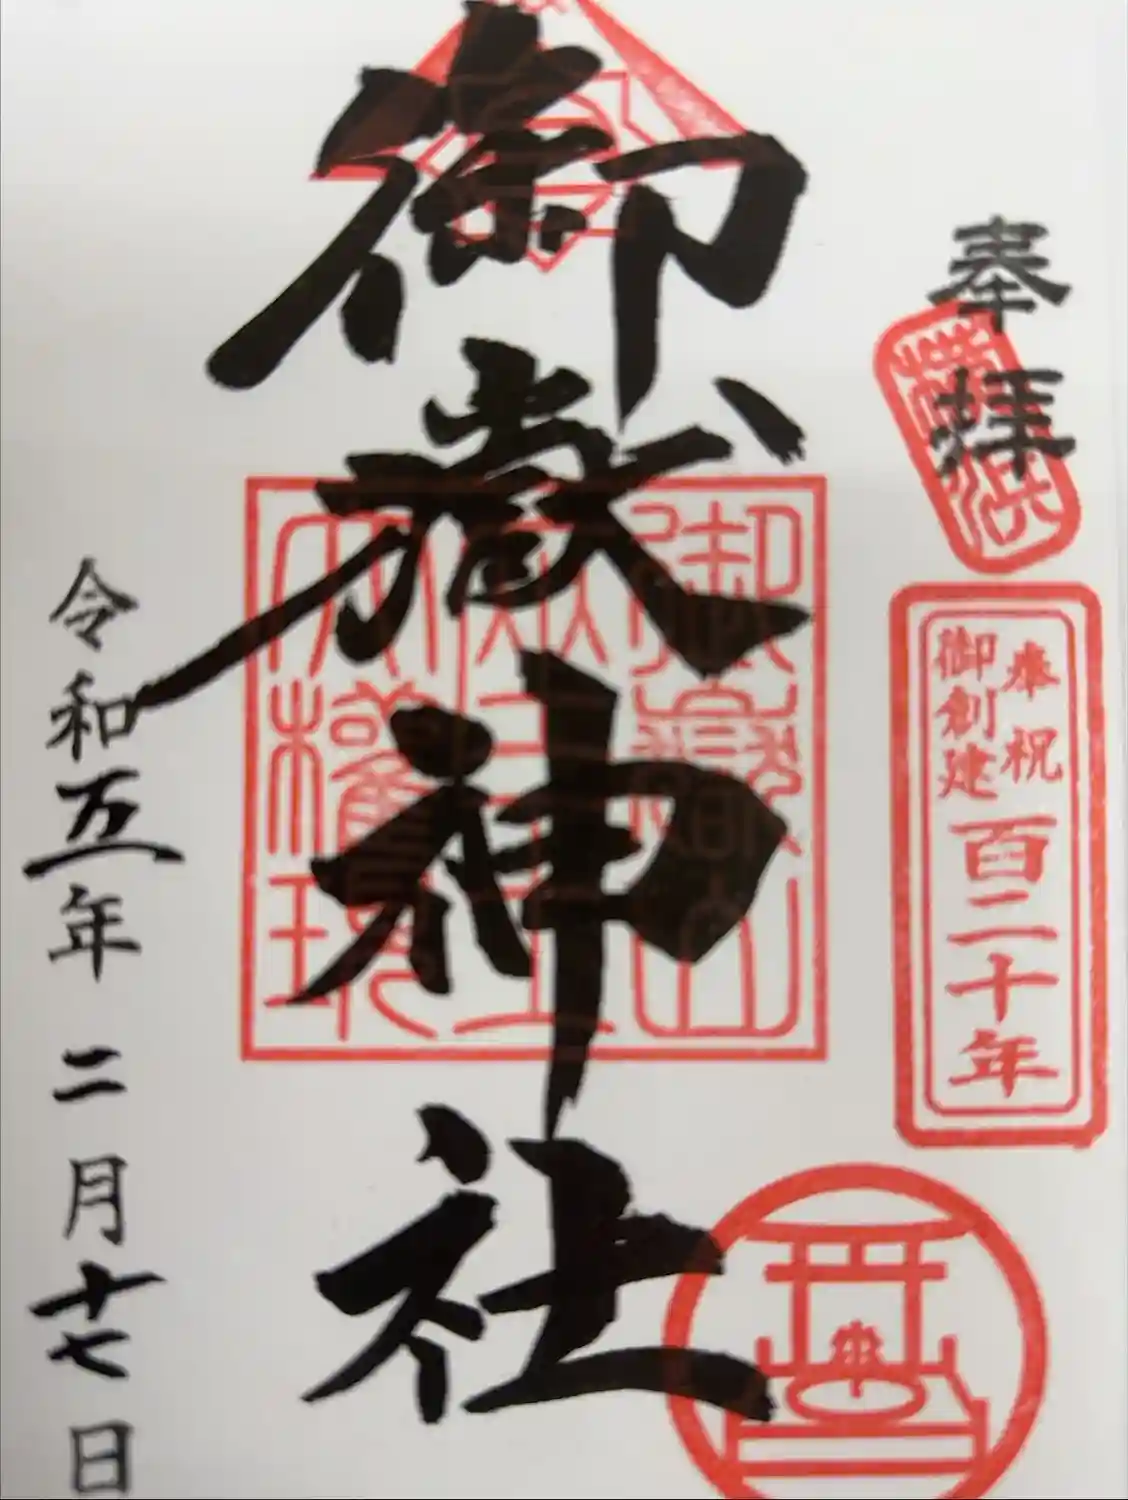 奉拝
横浜
奉祝
御創建
百二十年
御嶽神社
令和五年二月十七日